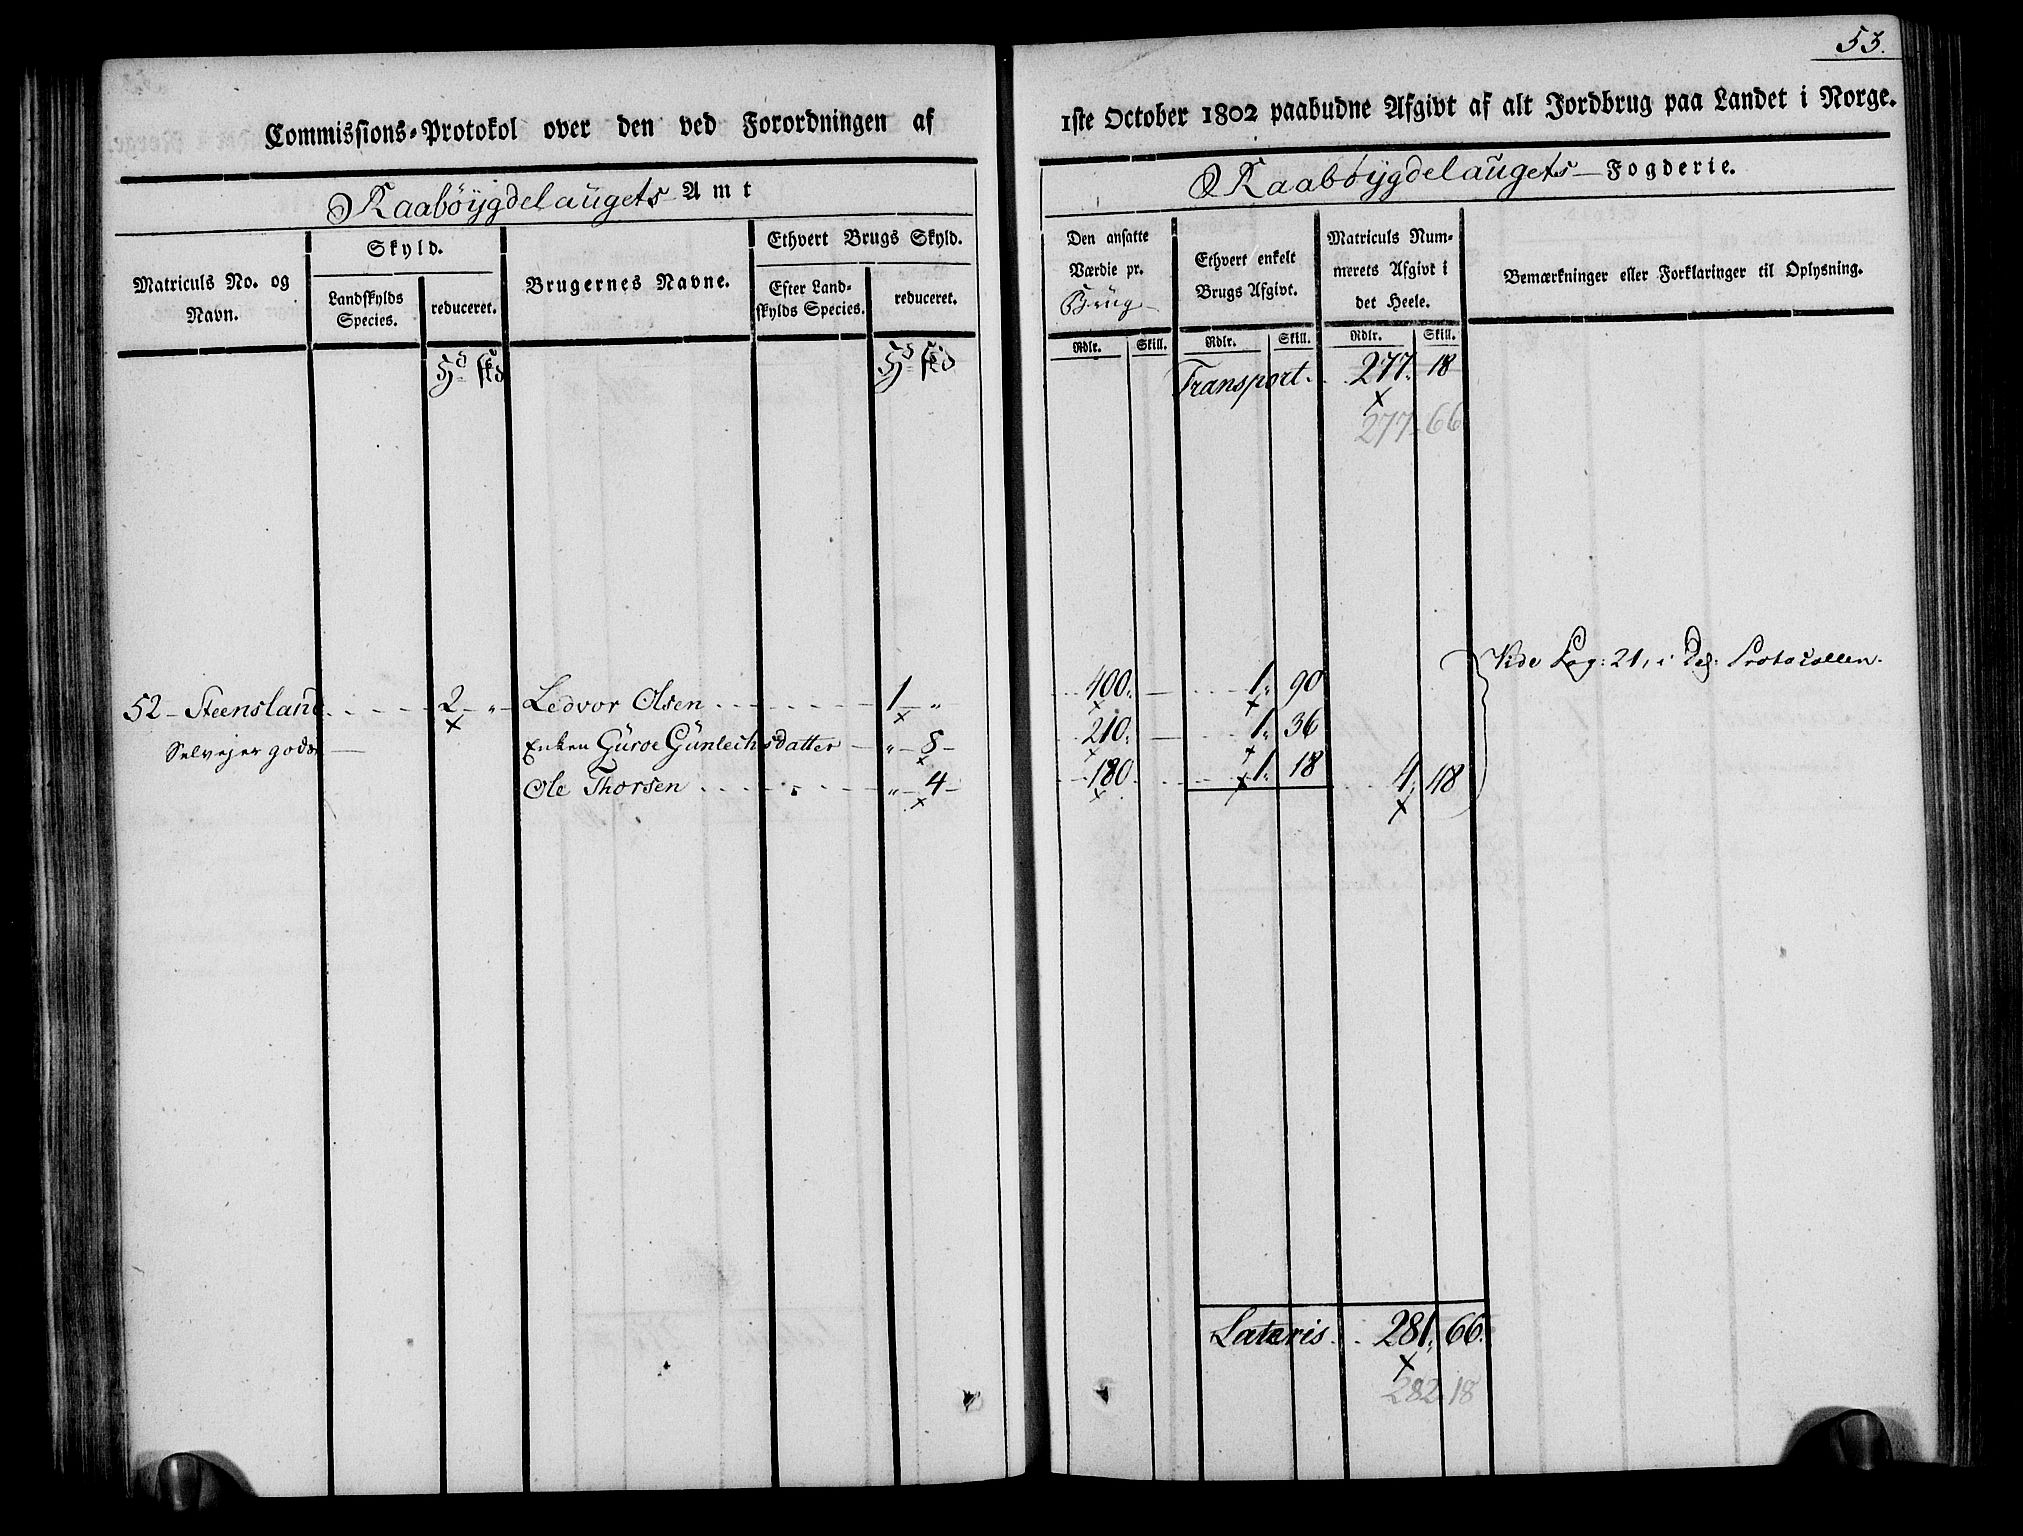 53.
Commissions-Protokol over den ved Forordningen af 1ste October 1802 paabudne Afgivt af alt Jordbrug paa Landet i Norge.
Raabøygdelaugets Amt
Raabøygdelaugets Fogderie.
Matriculs No. og Navn.
Skyld.
Landskylds Species.
reduceret.
Brugernes Navne.
Ethvert Brugs Skyld.
Efter Landskylds Species.
reduceret.
Den ansatte Værdie pr. Brug
Ethvert enkelt Brugs Afgivt.
Matriculs Nummerets Afgivt i det Heele.
Bemærkninger eller Forklaringer til Oplysning.
Rdlr. Skill. Rdlr. Skill. Rdlr. Skill.
Transport. 277. 18
277-66
Vide Pag: 21, i Protocollen.
52 - Steensland 2 „ Ledvor Olsen 1 „ 400. 1. 90
Selvejer gods Enken Guroe Gunlechsdatter „ 8 210. 1. 36
Ole Thorsen „ 4 180. 1. 18 4. 48
Lateris 281. 66.
282 18